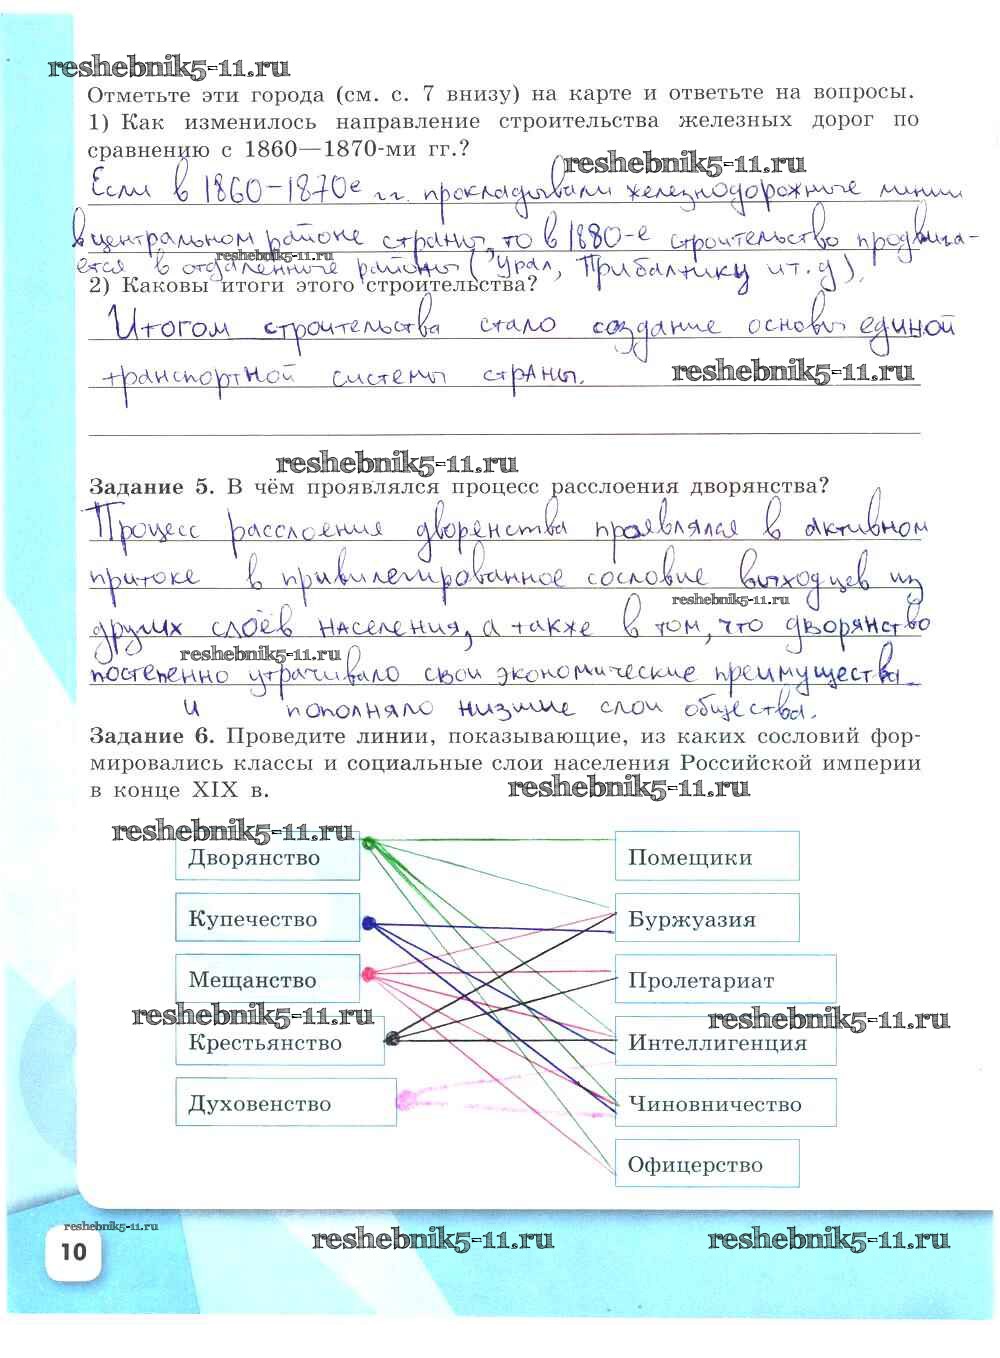 reshebnik5-11.ru
Отметьте эти города (см. с. 7 внизу) на карте и ответьте на вопросы.
1) Как изменилось направление строительства железных дорог по
сравнению с 1860—1870-ми гг.?
reshebnik5-11.ru
Если в 1860-1870е гг. прокладывали железнодорожные линии
в центральном районе страны, то в 1880-е строительство продвига-
reshebnik5-11.ru
ется в отдаленные районы (Урал, Прибалтику и т.д).
2) Каковы итоги этого строительства?
Итогом строительства стало создание основы единой
транспортной системы страны.
reshebnik5-11.ru
reshebnik5-11.ru
Задание 5. В чём проявлялся процесс расслоения дворянства?
Процесс расслоения дворенства проявлялся в активном
притоке в привилегированное сословие выходцев из
reshebnik5-11.ru
других слоёв населения, а также в том, что дворянство
reshebnik5-11.ru
постепенно утрачивало свои экономические преимущества
и пополняло низшие слои общества.
Задание 6. Проведите линии, показывающие, из каких сословий фор-
мировались классы и социальные слои населения Российской империи
в конце XIX в.
reshebnik5-11.ru
reshebnik5-11.ru
Дворянство
Помещики
Купечество
Буржуазия
Мещанство
Пролетариат
reshebnik5-11.ru
reshebnik5-11.ru
Крестьянство
Интеллигенция
Духовенство
Чиновничество
Офицерство
reshebnik5-11.ru
10
reshebnik5-11.ru
reshebnik5-11.ru